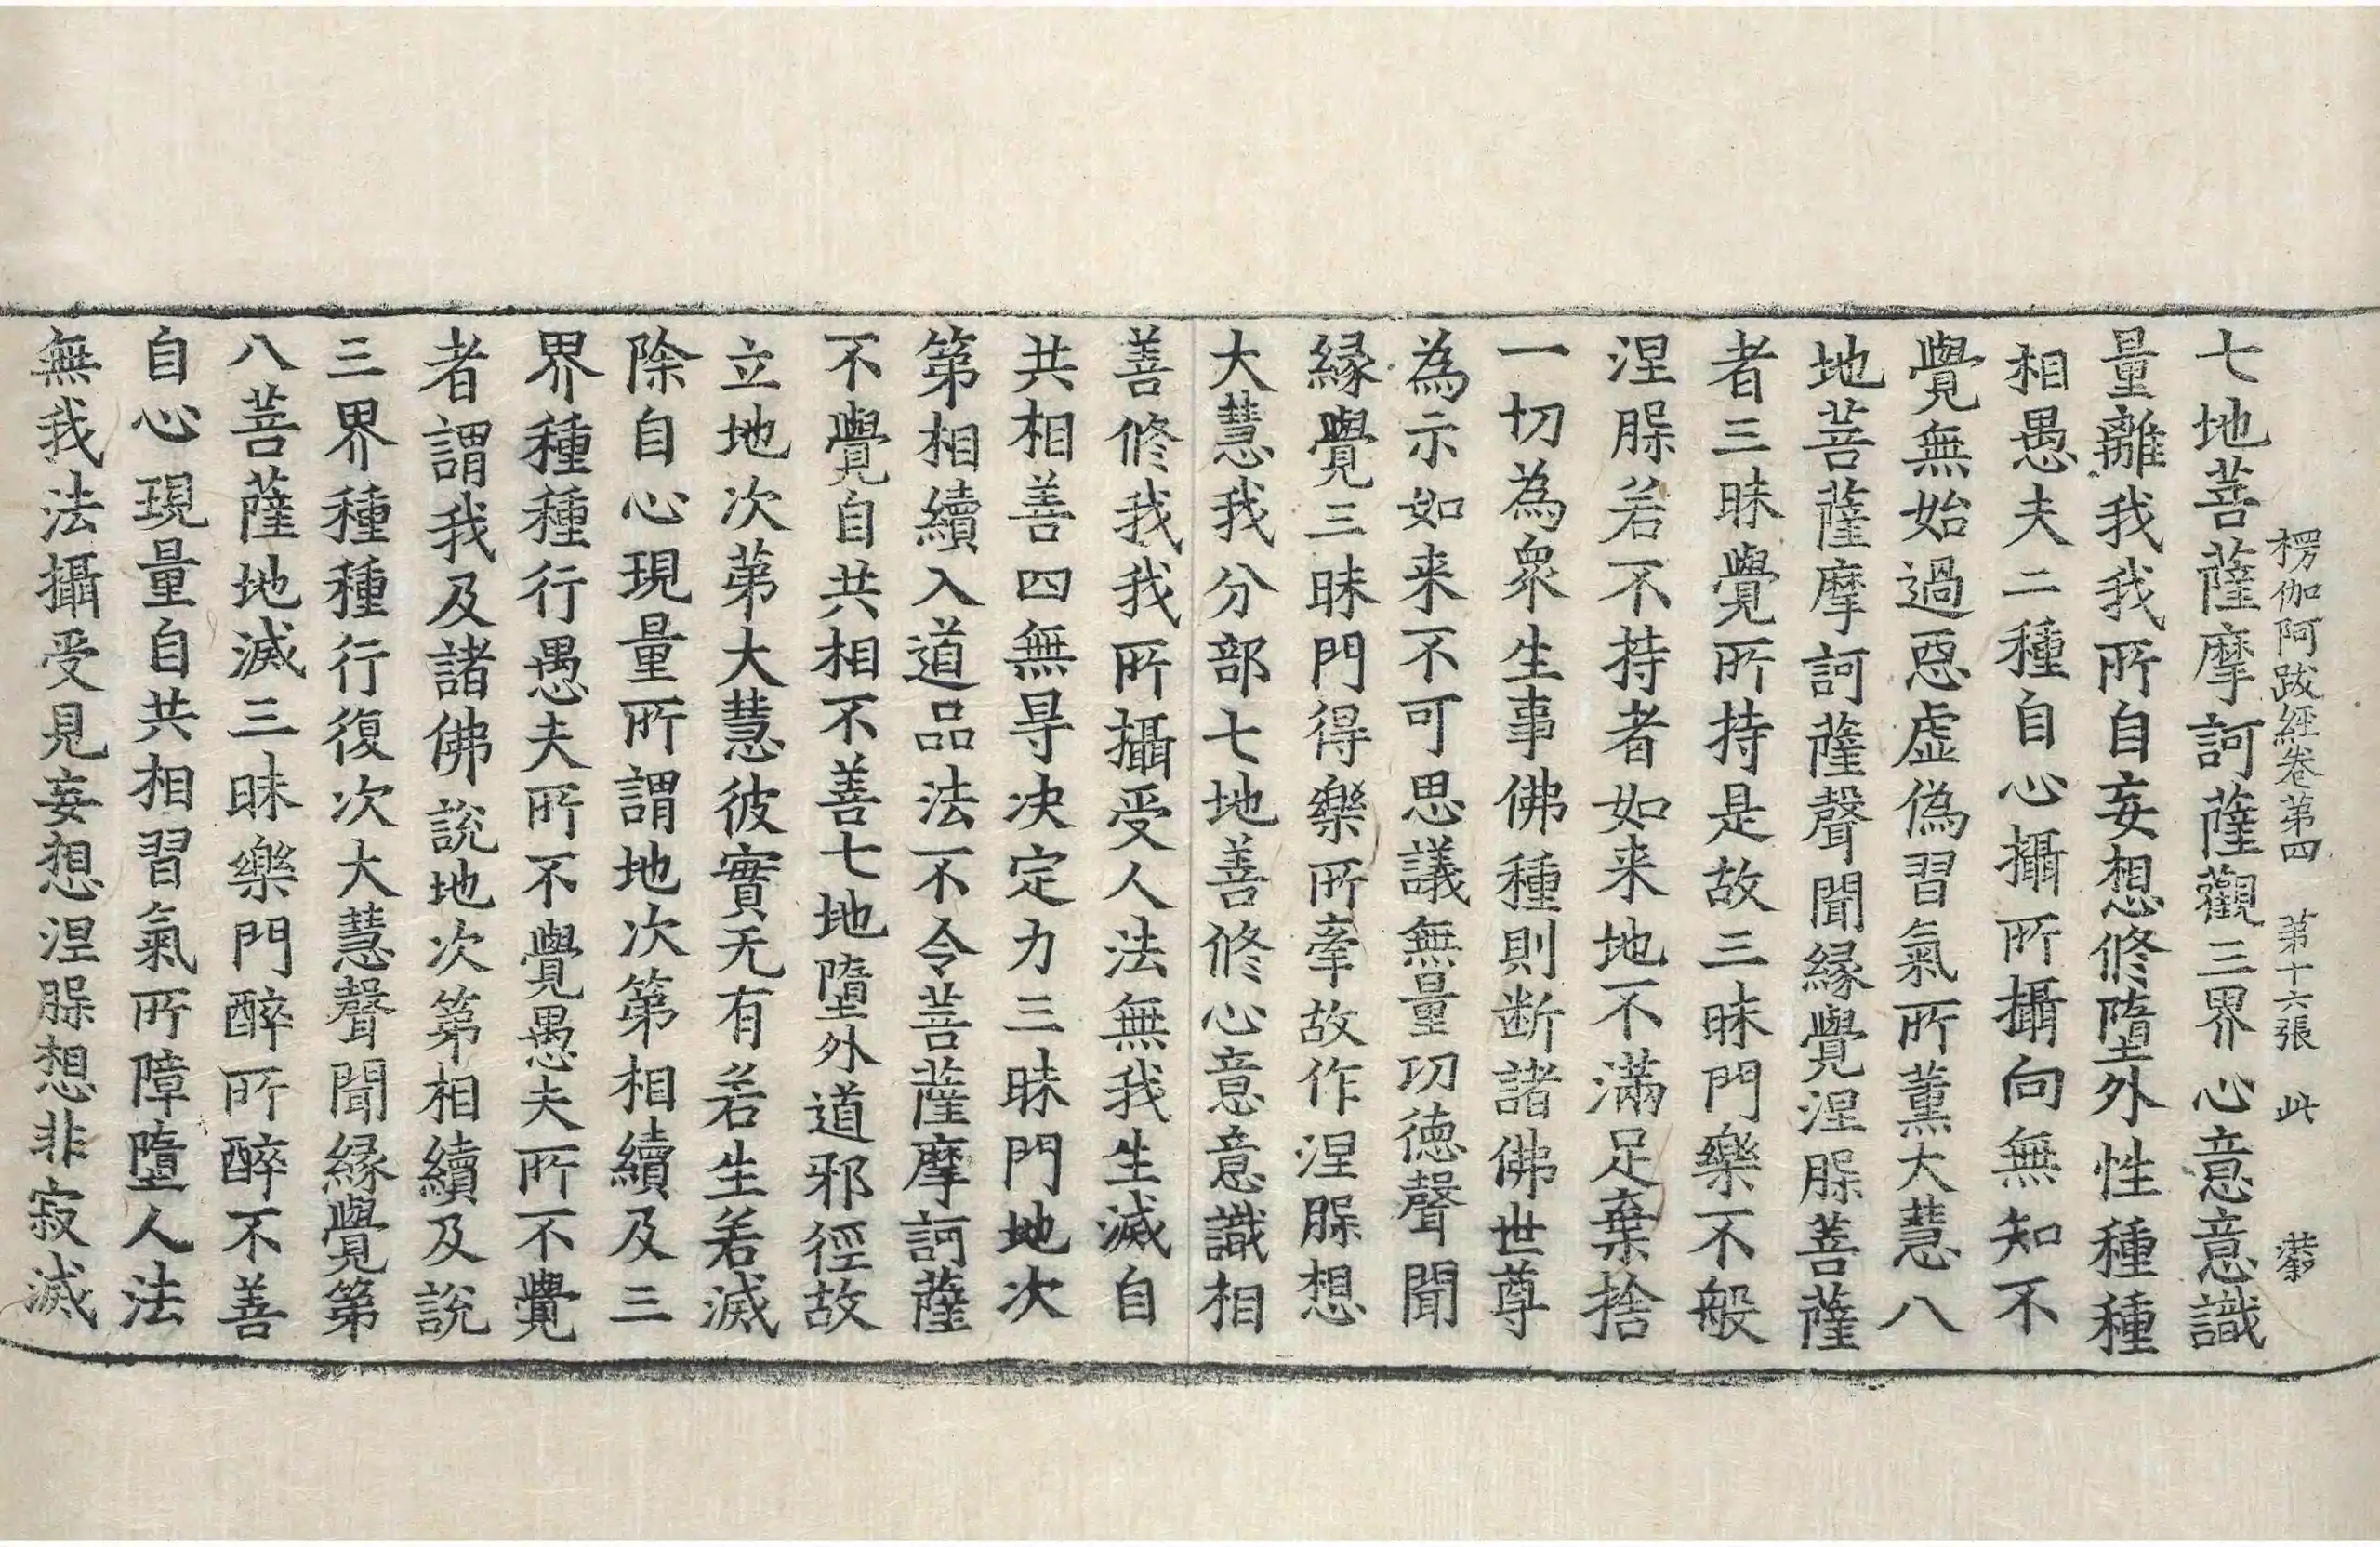 楞伽阿跋経卷第四 苐十六張 此 恭
七地菩薩摩訶薩觀三界心意意識
量離我我所自妄想修墮外性種種
相愚夫二種自心攝所攝向無知不
覺無始過惡虛偽習氣所薫大慧八
地菩薩摩訶薩聲聞縁覺涅槃菩薩
者三昧覺所持是故三昧門樂不般
涅槃若不持者如来地不滿足棄捨
一切為衆生事佛種則断諸佛世尊
為示如来不可思議無量功徳聲聞
縁覺三昧門得樂所牽故作涅槃想
大慧我分部七地善修心意意識相
善修我我所攝受人法無我生滅自
共相善四無㝵决定力三昧門地次
第相續入道品法不令菩薩摩訶薩
不覺自共相不善七地墮外道邪徑故
立地次苐大慧彼實无有若生若滅
除自心現量所謂地次第相續及三
界種種行愚夫所不覺愚夫所不覺
者謂我及諸佛說地次第相續及說
三界種種行復次大慧聲聞縁覺第
八菩薩地滅三昧樂門醉所醉不善
自心現量自共相習氣所障墮人法
無我法攝受見妄想涅槃想非寂滅